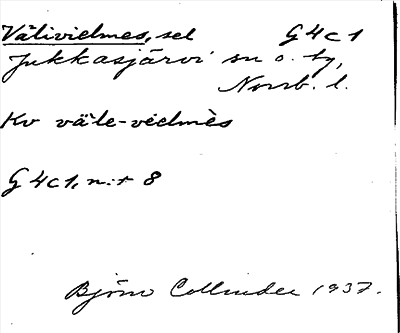 Välivielmes, sel G4c1
Jukkasjärvi sn o. ty,
Norrb. l.
Kv väle-vielmès
G4c1, n:r 8
Björn Collinder 1937.